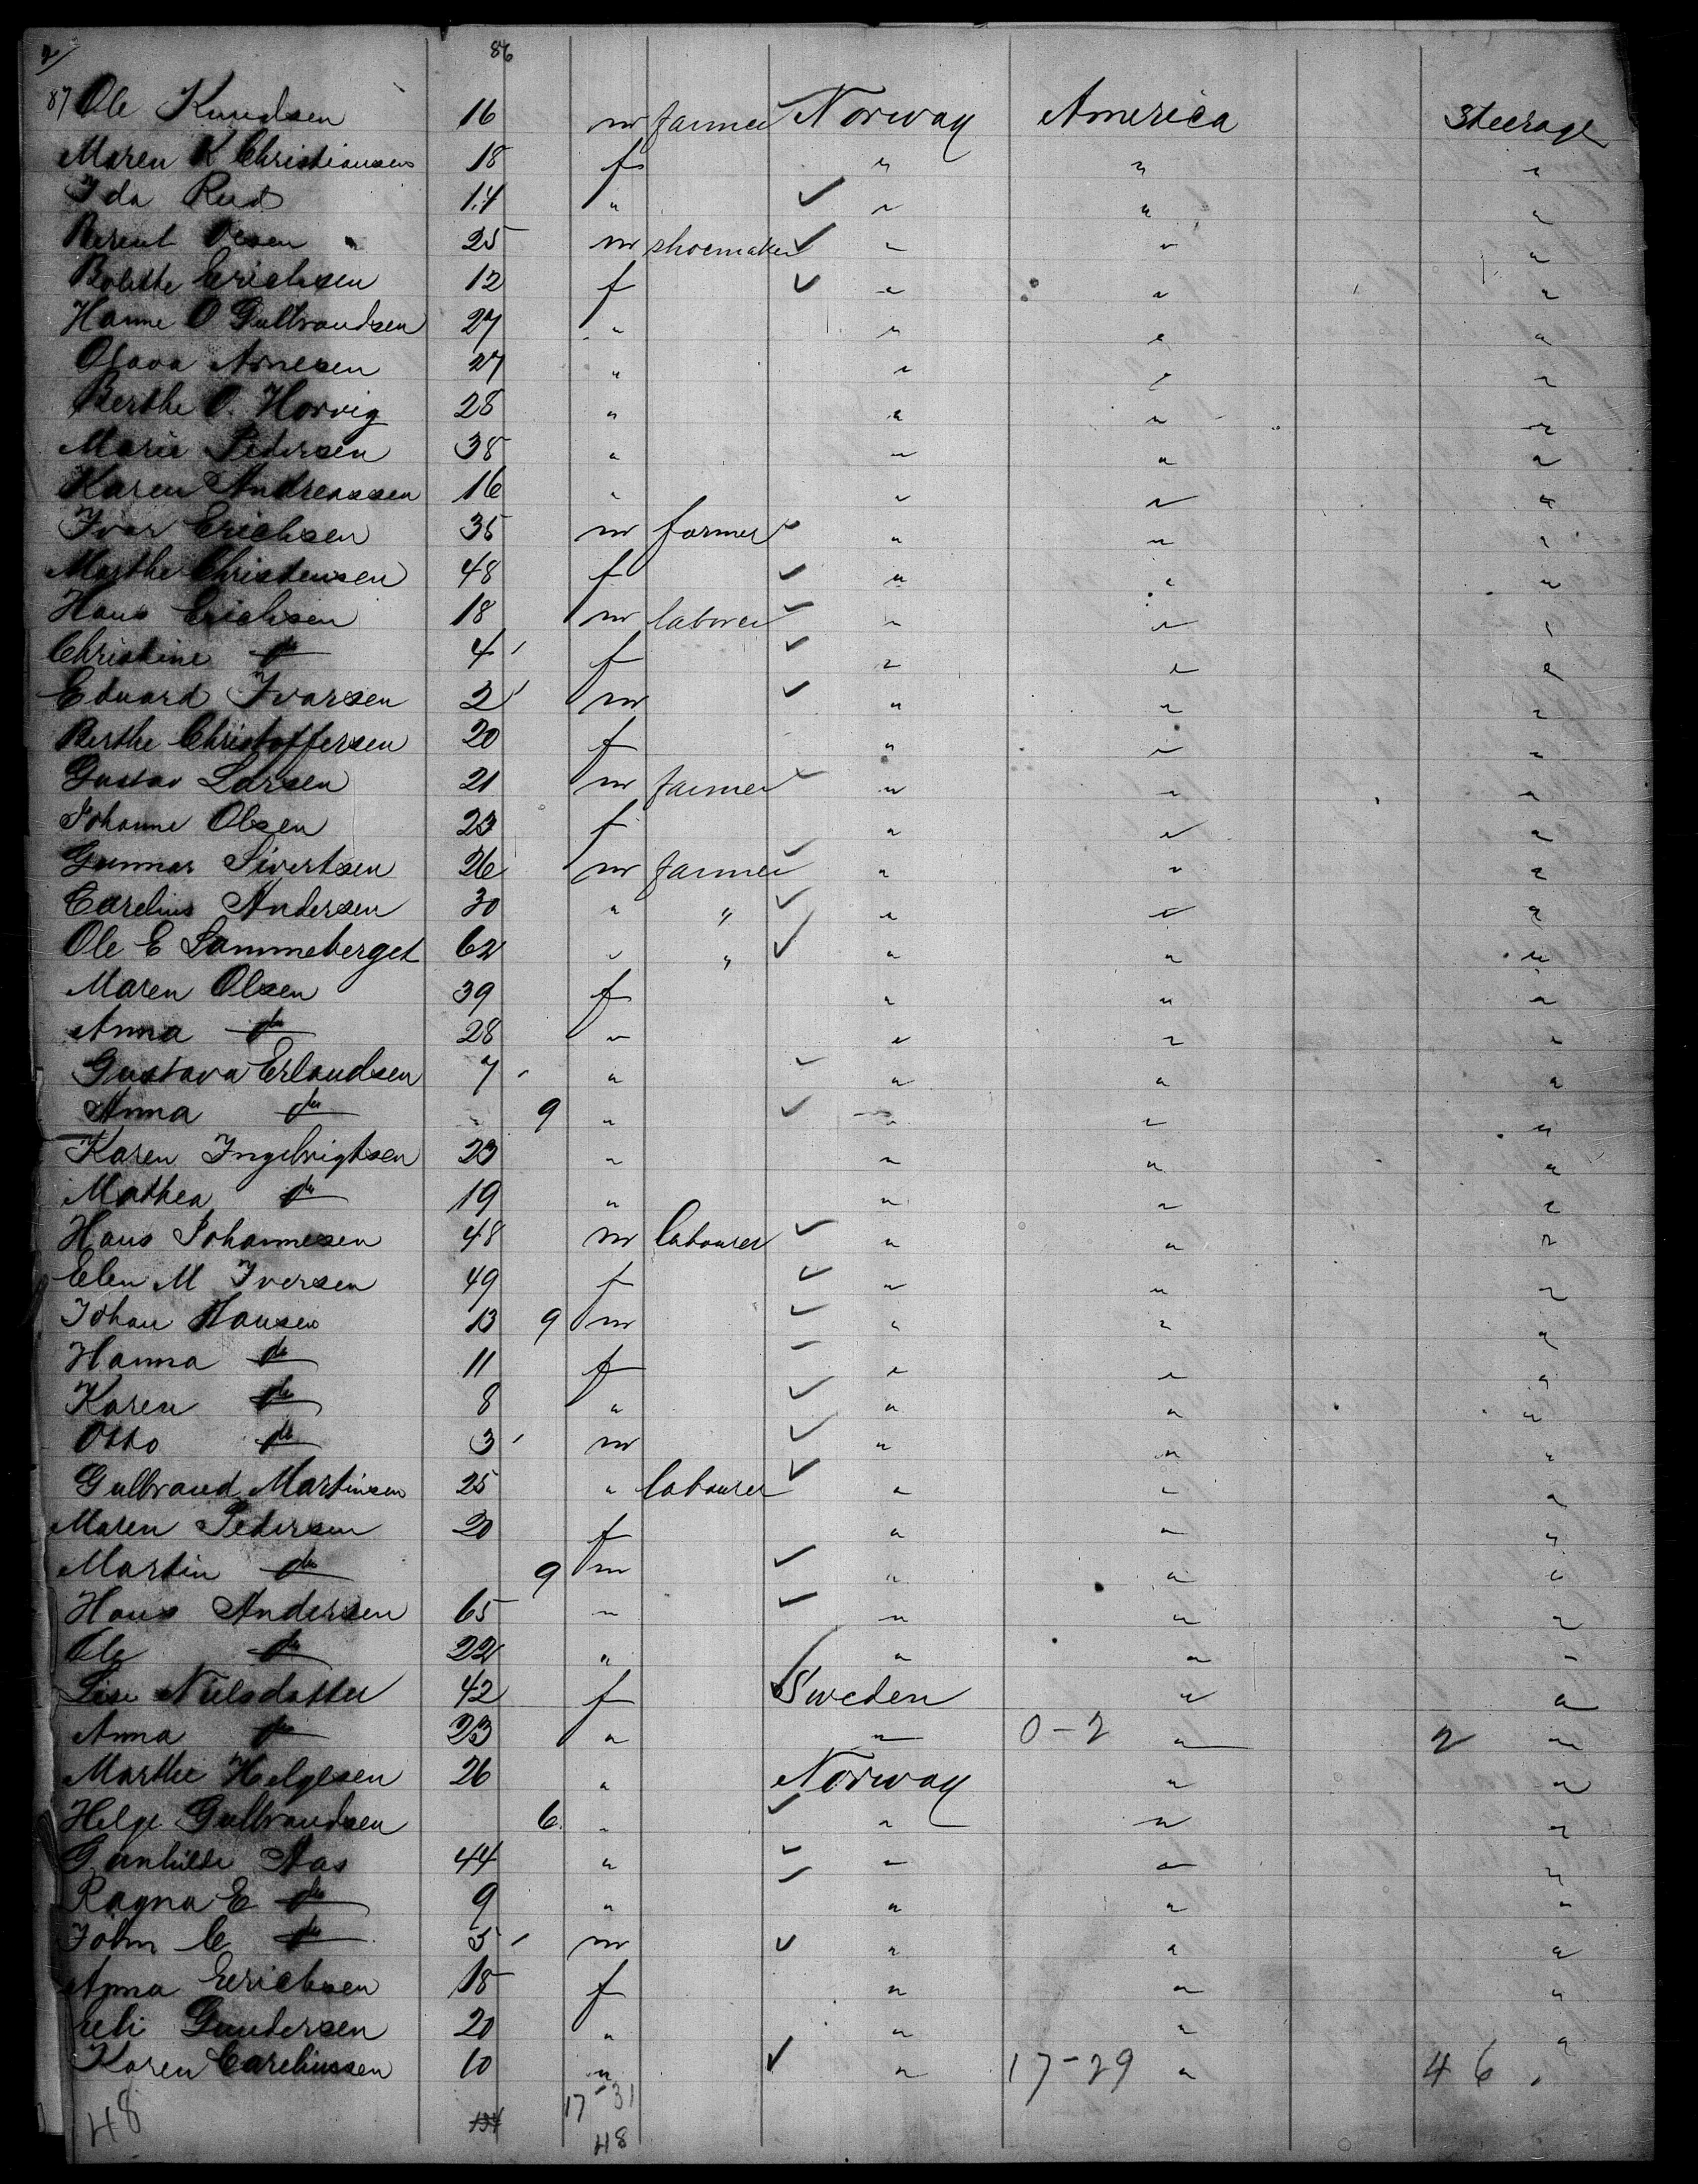 2/ 86
87 Ole Knudsen 16 m farmer ✓ Norway America Steerage
Maren K Christiansen 18 f " " "
Ida Rud 14 " ✓ " " "
Berent Olsen 25 m shoemaker ✓ " " "
Bolette Erichsen 12 f ✓ " " "
Hanne O Gulbrandsen 27 " " " "
Olava Arnesen 27 " " " "
Berthe O. Horvig 28 " " " "
Marie Pedersen 38 " " " "
Karen Andreassen 16 " " " "
Ivar Erichsen 35 m farmer ✓ " " "
Marthe Christensen 48 f ✓ " " "
Hans Erichsen 18 m laborer ✓ " " "
Christine do 4 ' f ✓ " " "
Eduard Ivarsen 2 ' m ✓ " " "
Berthe Christoffersen 20 f " " "
Gustav Larsen 21 m farmer ✓ " " "
Johanne Olsen 23 f " " "
Gunnar Sivertsen 26 m farmer ✓ " " "
Carelius Andersen 30 " " ✓ " " "
Ole E Lammeberget 62 " " ✓ " " "
Maren Olsen 39 f " " "
Anna do 28 " " " "
Gustava Erlandsen 7 ' " ✓ " " "
Anna do " 9 " ✓ " " "
Karen Ingebrigtsen 23 " " " "
Mathea do 19 " " " "
Hans Johannesen 48 m labourer ✓ " " "
Elen M Iversen 49 f ✓ " " "
Johan Hansen 13 9 m ✓ " " "
Hanna do 11 f ✓ " " "
Karen do 8 " ✓ " " "
Otto do 3 ' m ✓ " " "
Gulbrand Martinsen 25 " labourer ✓ " " "
Maren Pedersen 20 f " " "
Martin do 9 m ✓ " " "
Hans Andersen 65 " ✓ " " "
Ole do 22 " ✓ " " "
Lise Nielsdatter 42 f Sweden " "
Anna do 23 " " 0-2 " 2 "
Marthe Helgesen 26 " Norway " "
Helge Gulbrandsen 6 " ✓ " " "
Gunhilde Aas 44 " ✓ " " "
Ragna E do 9 " ✓ " " "
John C do 5 ' m ✓ " " "
Anna Erichsen 18 f " " "
Gundersen 20 " " " "
Karen Careliussen 10 " ✓ " 17-29 " 46 "
48 134 17-31
48